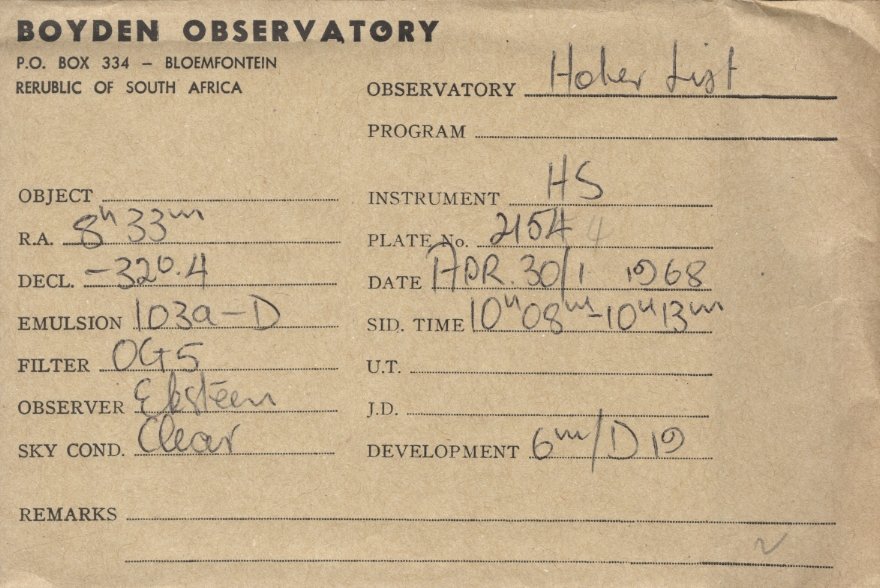 BOYDEN OBSERVATORY
P.O. BOX 334 – BLOEMFONTEIN
RERUBLIC OF SOUTH AFRICA
OBSERVATORY Hoher List
PROGRAM
OBJECT
INSTRUMENT HS
R.A. 8h 33m
PLATE No. 2154 4
DECL. -32°.4
DATE APR. 30/1 1968
EMULSION 103a-D
SID. TIME 10h08m-10h13m
FILTER OG5
U.T.
OBSERVER Eksteen
J.D.
SKY COND. Clear
DEVELOPMENT 6m/D19
REMARKS